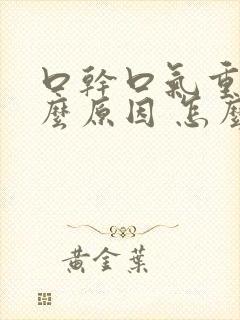 口幹口氣重
麼原因 怎麼
黃金葉